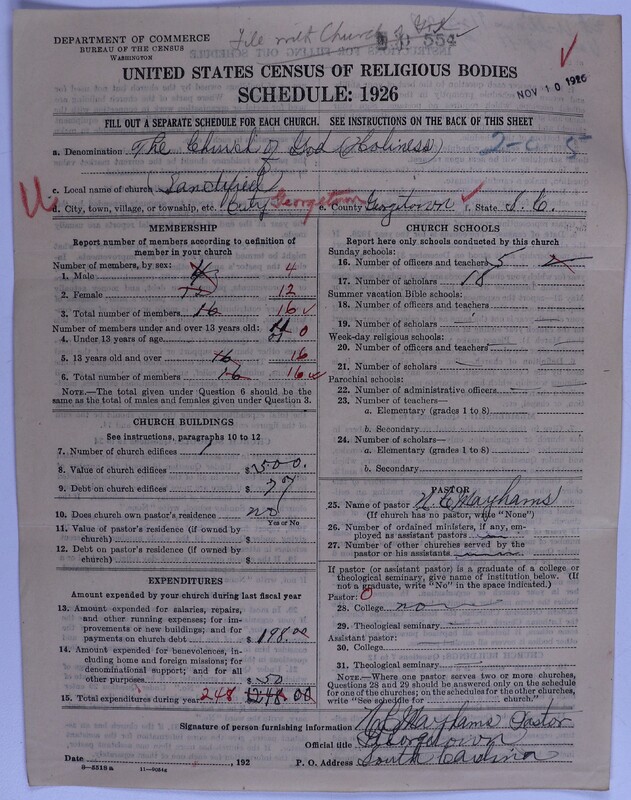 DEPARTMENT OF COMMERCE
BUREAU OF THE CENSUS
WASHINGTON
File with Church of God
554
NOV 10 1926
UNITED STATES CENSUS OF RELIGIOUS BODIES
SCHEDULE: 1926
FILL OUT A SEPARATE SCHEDULE FOR EACH CHURCH. SEE INSTRUCTIONS ON THE BACK OF THIS SHEET
a. Denomination The Church of God (Holiness)
c. Local name of church (Sanctified)
d. City, town, village, or township, etc. City Georgetown e. County Georgetown f. State S. C.
MEMBERSHIP
Report number of members according to definition of
member in your church
Number of members, by sex:
1. Male 4 4
2. Female 12 12
3. Total number of members 16 16
Number of members under and over 13 years old:
4. Under 13 years of age 0
5. 13 years old and over 16 16
6. Total number of members 16 16
NOTE.—The total given under Question 6 should be the
same as the total of males and females given under Question 3.
CHURCH BUILDINGS
See instructions, paragraphs 10 to 12
7. Number of church edifices 1
8. Value of church edifices $ 500.
9. Debt on church edifices $ 77
10. Does church own pastor's residence no
Yes or No
11. Value of pastor's residence (if owned by
church) $
12. Debt on pastor's residence (if owned by
church) $
EXPENDITURES
Amount expended by your church during last fiscal year
13. Amount expended for salaries, repairs,
and other running expenses; for im-
provements or new buildings; and for
payments on church debt $ 198.00
14. Amount expended for benevolences, in-
cluding home and foreign missions; for
denominational support; and for all
other purposes $ 50
15. Total expenditures during year 248 $248.00
CHURCH SCHOOLS
Report here only schools conducted by this church
Sunday schools:
16. Number of officers and teachers 5
17. Number of scholars 18
Summer vacation Bible schools:
18. Number of officers and teachers
19. Number of scholars
Week-day religious schools:
20. Number of officers and teachers
21. Number of scholars
Parochial schools:
22. Number of administrative officers
23. Number of teachers—
a. Elementary (grades 1 to 8)
b. Secondary
24. Number of scholars—
a. Elementary (grades 1 to 8)
b. Secondary
PASTOR
25. Name of pastor Mayhams
(If church has no pastor, write "None")
26. Number of ordained ministers, if any, em-
ployed as assistant pastors
27. Number of other churches served by the
pastor or his assistants
If pastor (or assistant pastor) is a graduate of a college or
theological seminary, give name of institution below. (If
not a graduate, write "No" in the space indicated.)
Pastor: 0
28. College no
29. Theological seminary
Assistant pastor:
30. College
31. Theological seminary
NOTE.—Where one pastor serves two or more churches,
Questions 28 and 29 should be answered only on the schedule
for one of the churches; on the schedules for the other churches,
write "See schedule for church."
Signature of person furnishing information Mayhams Pastor
Official title Georgetown
Date , 192 P. O. Address South Carolina
8—5518a 11—9054